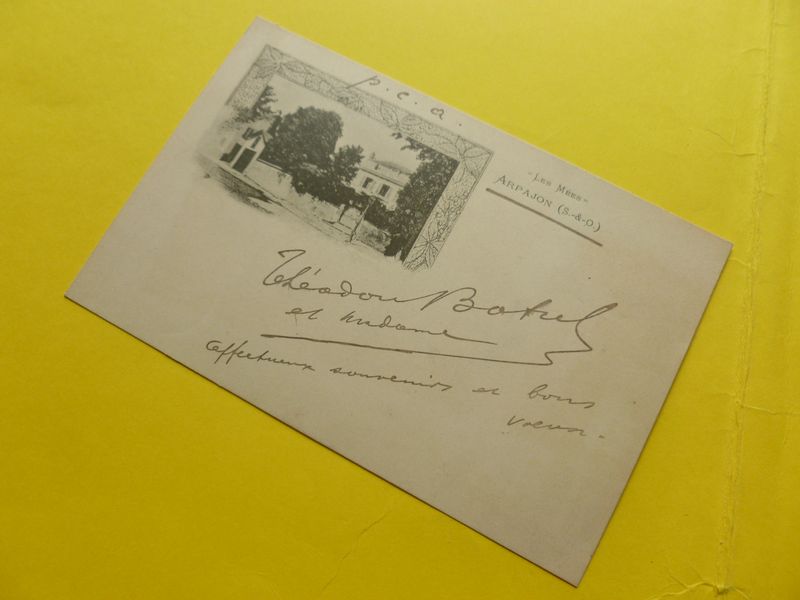 p. c. a.
"LES MÉES"
ARPAJON (S.-&-O.)
Théodore Botrel
et madame
affectueux souvenirs et bons
vœux.